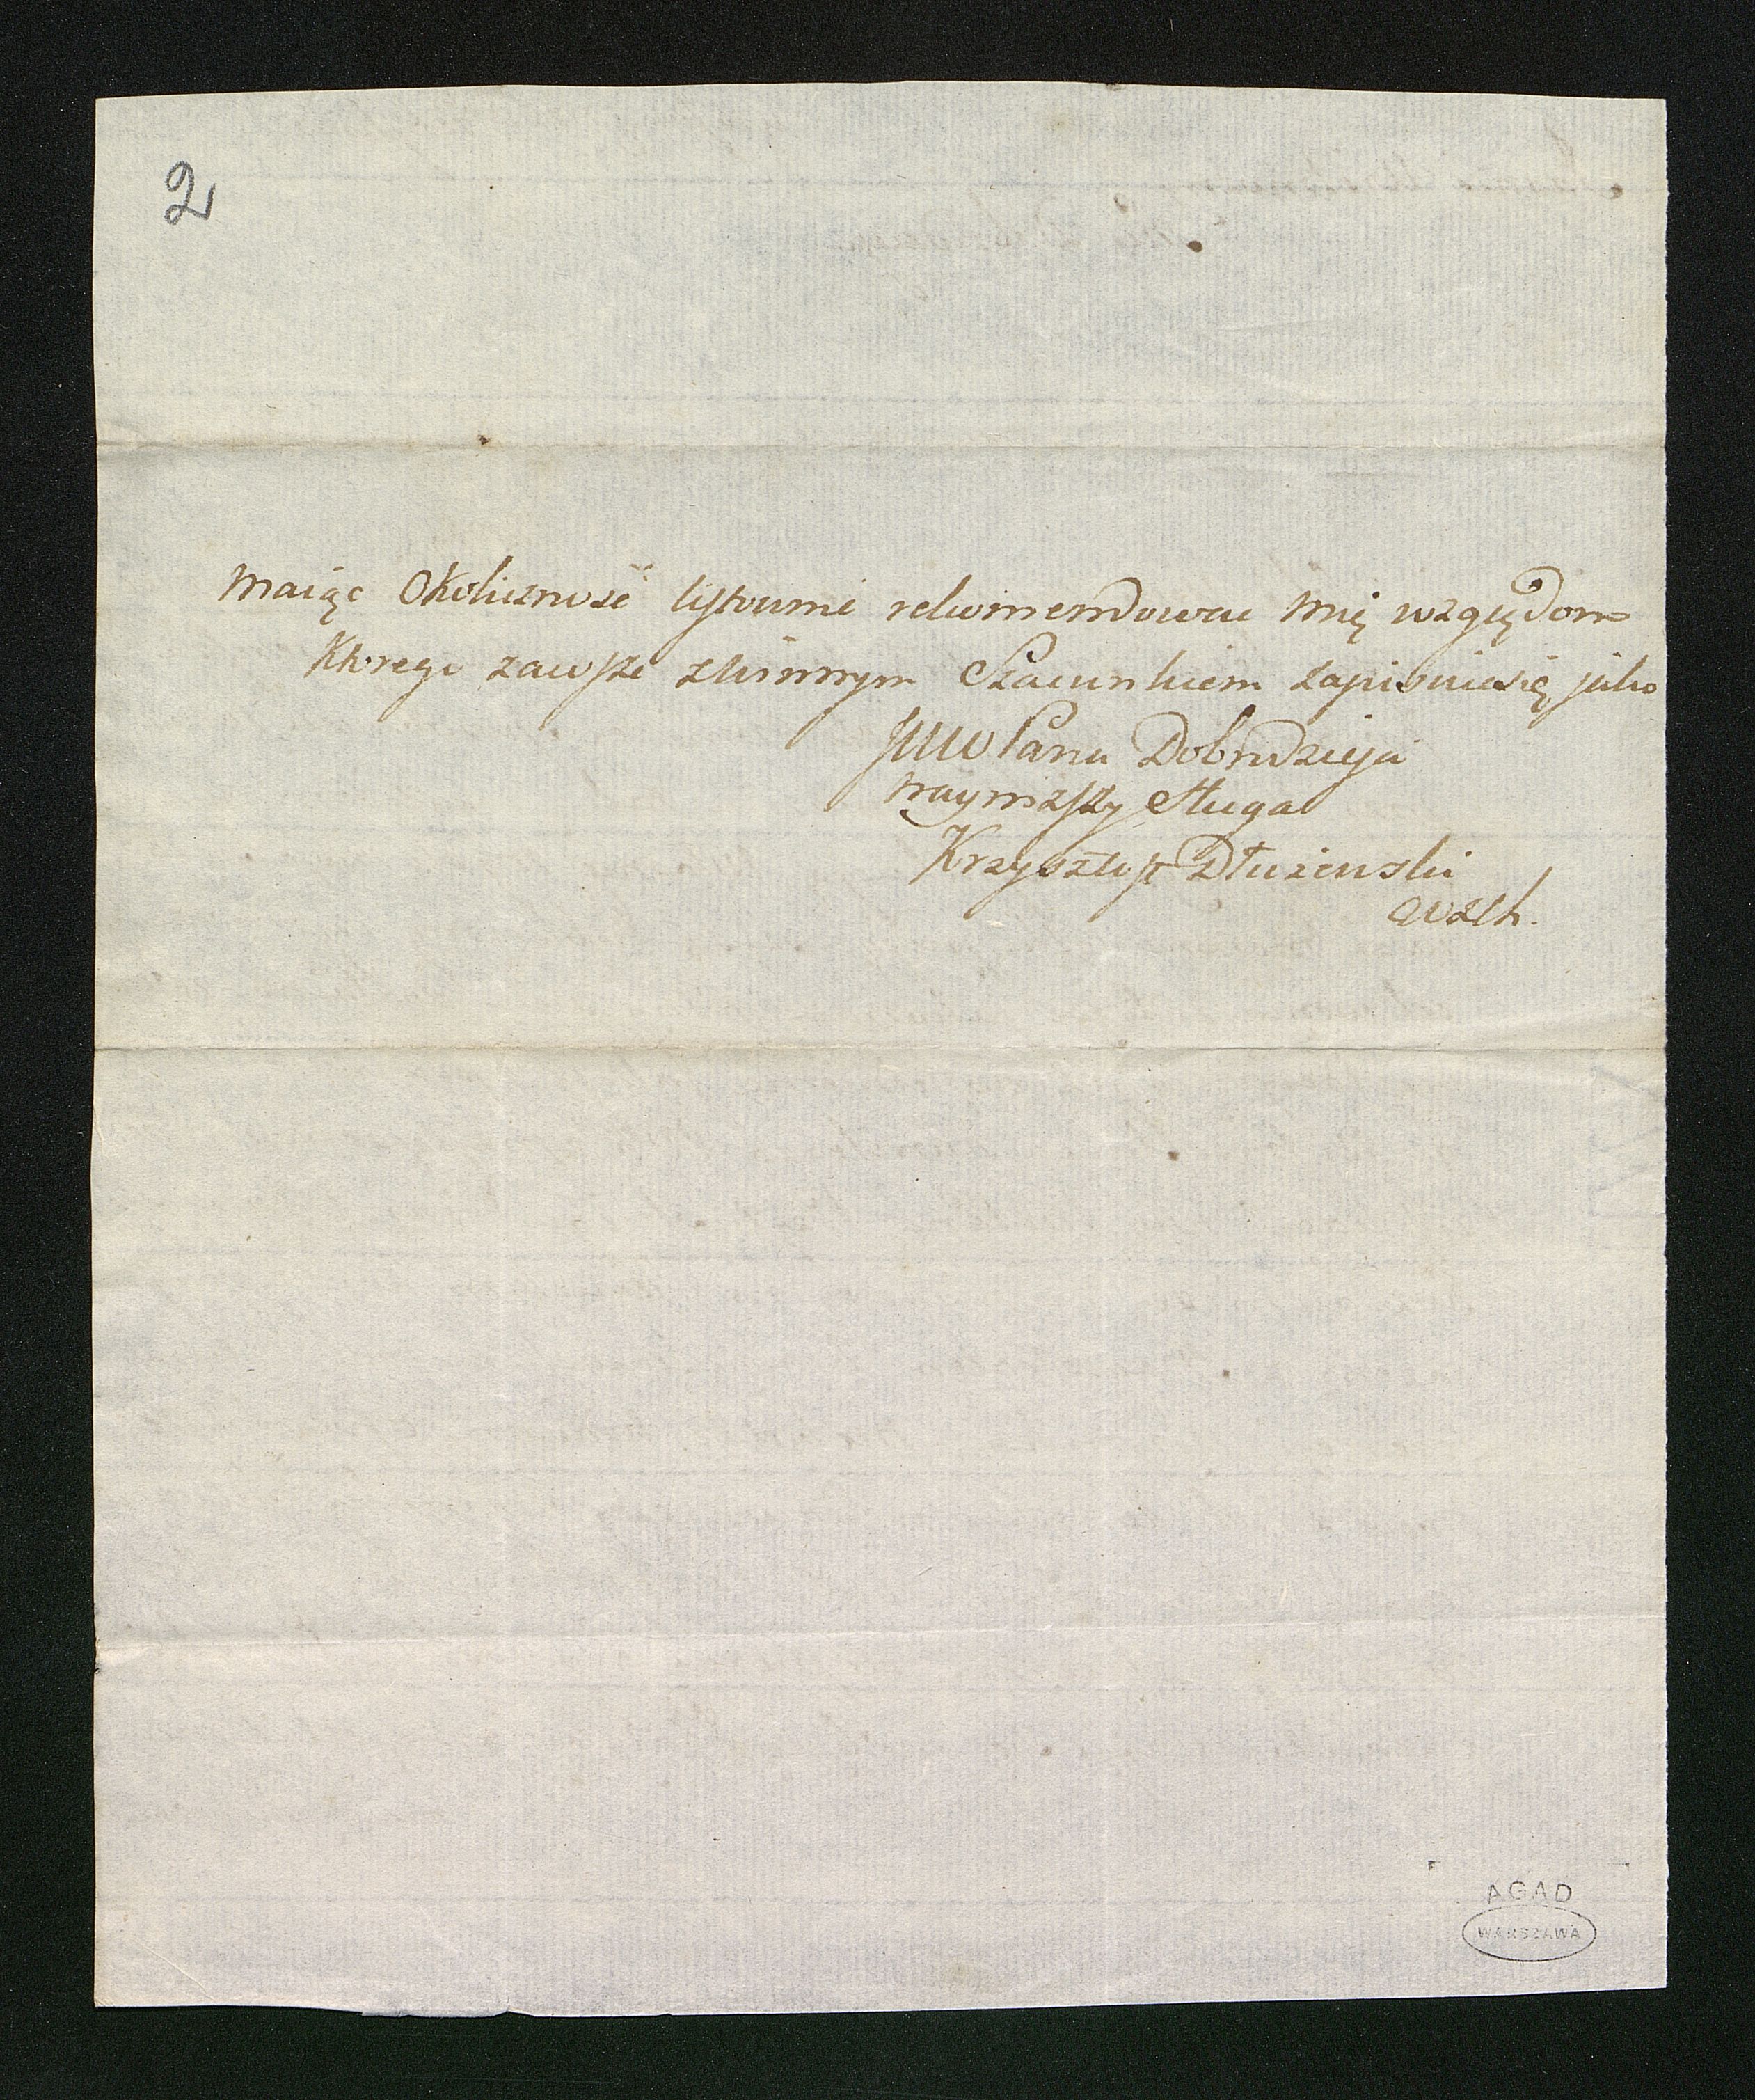 2
Maiąc Okoliczność listowne rekomendować mię względom
Ktorego zawsze z winnym Szacunkiem zapisuie się jako
JWW Pana Dobrodzieja
nayniższy Sługa
Krzysztof Dłużewski
AGAD
WARSZAWA